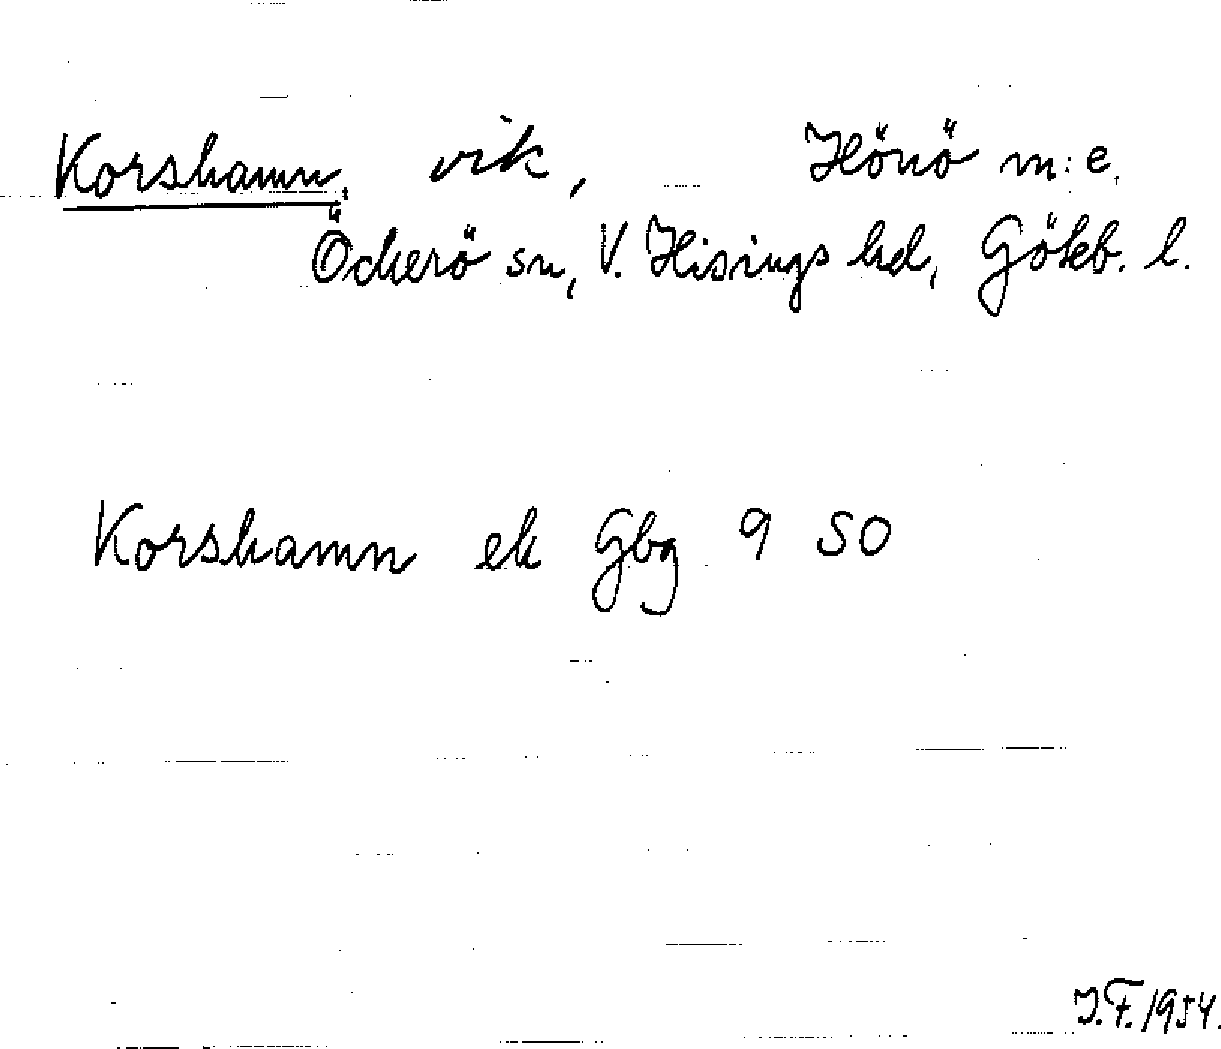 Korshamn, vik, Hönö m:e.
Öckerö sn, V. Hisings hd, Göteb. l.
Korshamn ek Gbg 9 SO
I.F. 1954.